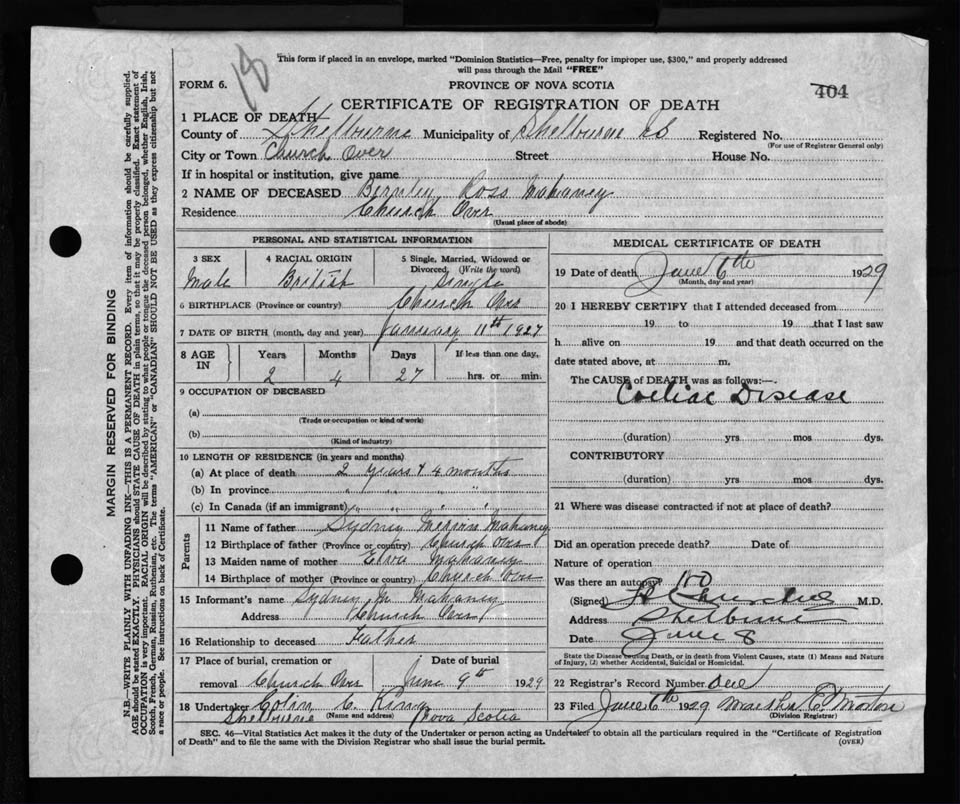 18
This form if placed in an envelope, marked "Dominion Statistics—Free, penalty for improper use, $300," and properly addressed
will pass through the Mail "FREE"
FORM 6.
PROVINCE OF NOVA SCOTIA
404
CERTIFICATE OF REGISTRATION OF DEATH
1 PLACE OF DEATH
County of Shelburne Municipality of Shelburne Registered No.
(For use of Registrar General only)
City or Town Church Over Street House No.
If in hospital or institution, give name
2 NAME OF DECEASED Ross Mahaney
Residence Church Over
(Usual place of abode)
PERSONAL AND STATISTICAL INFORMATION
3 SEX
Male
4 RACIAL ORIGIN
British
5 Single, Married, Widowed or
Divorced, (Write the word)
Single
6 BIRTHPLACE (Province or country) Church Over
7 DATE OF BIRTH (month, day and year) January 11th 1927
8 AGE
IN
Years Months Days If less than one day,
2 4 27 hrs. or min.
9 OCCUPATION OF DECEASED
(a)
(Trade or occupation or kind of work)
(b)
(Kind of industry)
10 LENGTH OF RESIDENCE (in years and months)
(a) At place of death 2 years & 4 months
(b) In province " " " "
(c) In Canada (if an immigrant) " " " "
Parents
11 Name of father Sydney Mahaney
12 Birthplace of father (Province or country) Church Over
13 Maiden name of mother Mahaney
14 Birthplace of mother (Province or country) Church Over
15 Informant's name Sydney M. Mahaney
Address Church Over
16 Relationship to deceased Father
17 Place of burial, cremation or Date of burial
removal Church Over June 9th 1929
18 Undertaker Colin C. King
(Name and address)
Shelburne Nova Scotia
MEDICAL CERTIFICATE OF DEATH
19 Date of death June 6th 1929
(Month, day and year)
20 I HEREBY CERTIFY that I attended deceased from
19 to 19 that I last saw
h alive on 19 and that death occurred on the
date stated above, at m.
The CAUSE of DEATH was as follows:—
Coeliac Disease
(duration) yrs. mos dys.
CONTRIBUTORY
(duration) yrs. mos dys.
21 Where was disease contracted if not at place of death?
Did an operation precede death? Date of
Nature of operation
Was there an autopsy? no
(Signed) M.D.
Address Shelburne
Date June 8
State the Disease causing Death, or in death from Violent Causes, state (1) Means and Nature
of Injury, (2) whether Accidental, Suicidal or Homicidal.
22 Registrar's Record Number One
23 Filed June 6th 1929 Martha C. Morton
(Division Registrar)
SEC. 46—Vital Statistics Act makes it the duty of the Undertaker or person acting as Undertaker to obtain all the particulars required in the "Certificate of Registration
of Death" and to file the same with the Division Registrar who shall issue the burial permit.
(OVER)
MARGIN RESERVED FOR BINDING
N.B.—WRITE PLAINLY WITH UNFADING INK—THIS IS A PERMANENT RECORD. Every item of information should be carefully supplied.
AGE should be stated EXACTLY. PHYSICIANS should STATE CAUSE OF DEATH in plain terms, so that it may be properly classified. Exact statement of
OCCUPATION is very important. RACIAL ORIGIN will be described by stating to what people or tongue the deceased person belonged, whether English, Irish,
Scotch, French, German, Russian, Ruthenian, etc. The terms "AMERICAN" or "CANADIAN" SHOULD NOT BE USED as they express citizenship but not
a race or people. See instructions on back of Certificate.